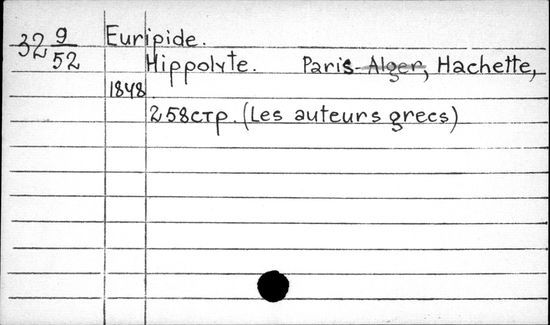 32 9/52 Euripide.
Hippolyte. Paris-Alger, Hachette,
1848
258стр. (Les auteurs grecs)